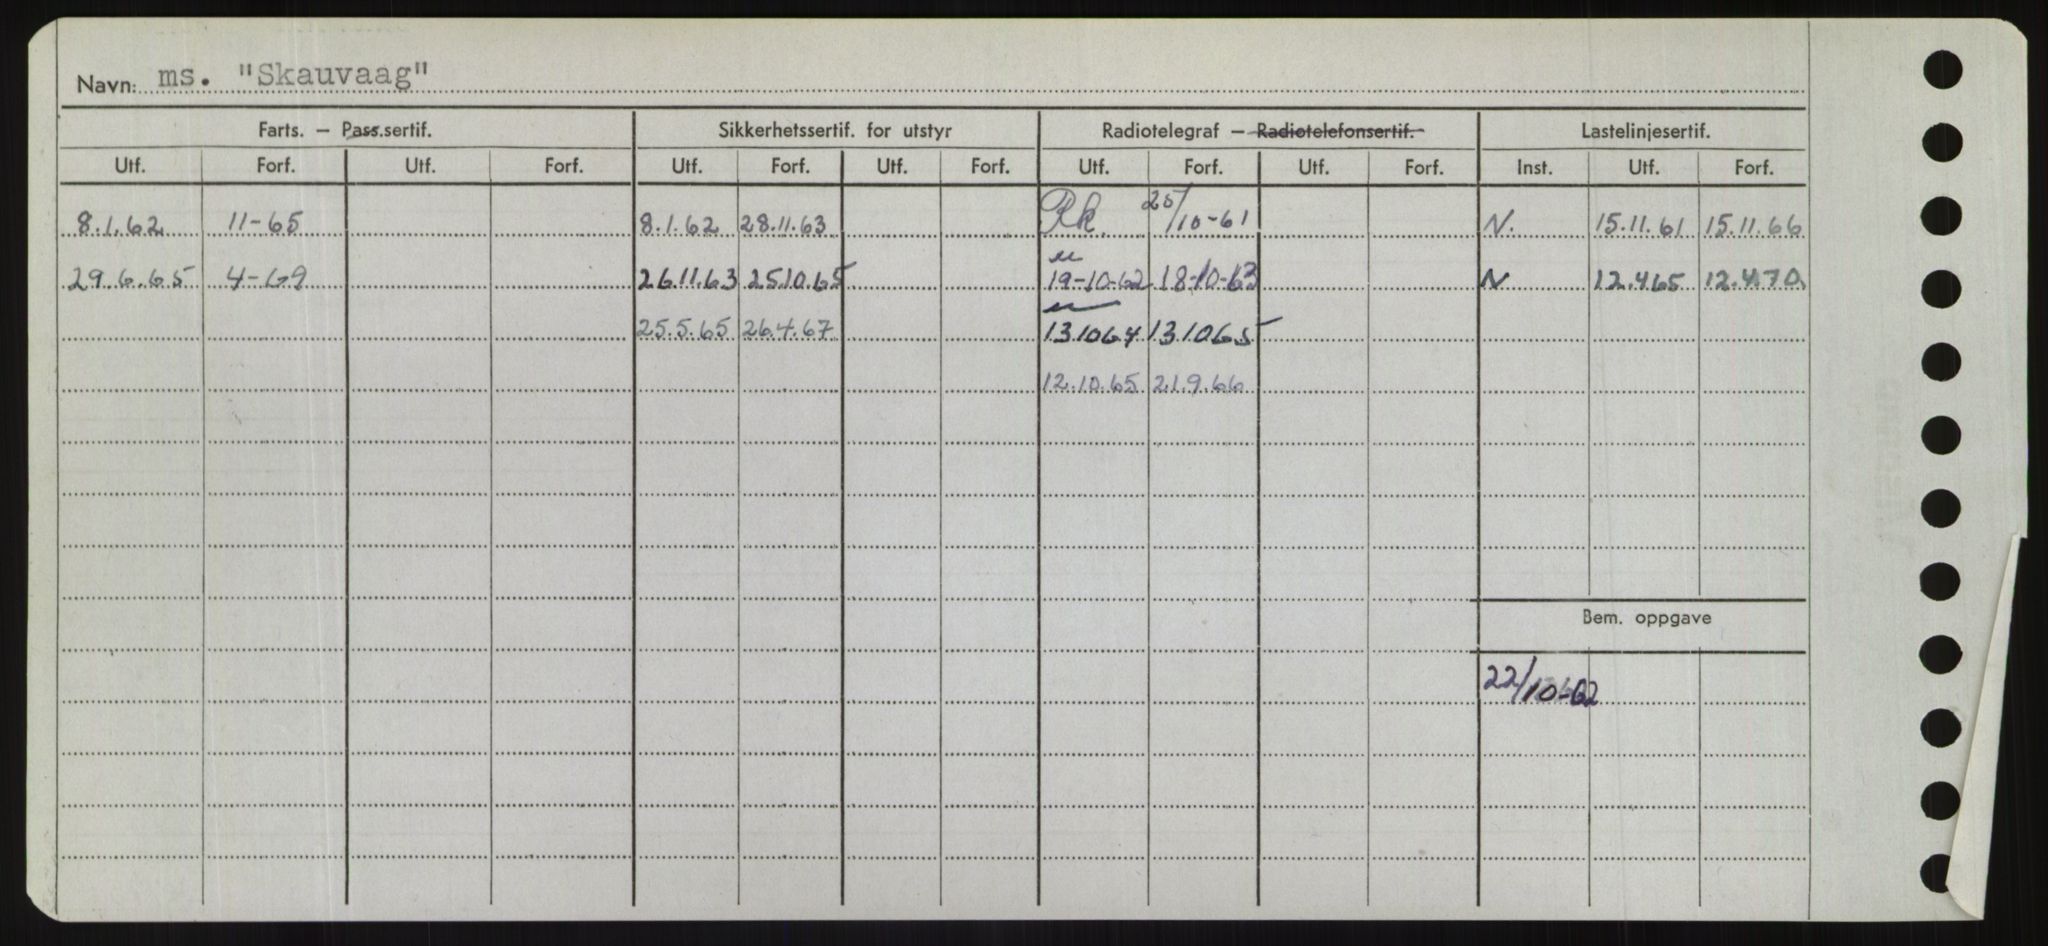 Navn: ms. "Skauvaag"
Farts. – Pass.sertif. Sikkerhetssertif. for utstyr Radiotelegraf – Radiotelefonsertif. Lastelinjesertif.
Utf. Forf. Utf. Forf. Utf. Forf. Utf. Forf. Utf. Forf. Utf. Forf. Inst. Utf. Forf.
8.1.62 11-65 8.1.62 28.11.63 Rk. 25/10-61 N. 15.11.61 15.11.66
29.6.65 4-69 26.11.63 25.10.65 19-10-62 18-10-63 N 12.4.65 12.4.70.
25.5.65 26.4.67 131064 131065
12.10.65 21.9.66
Bem. oppgave
22/10-62